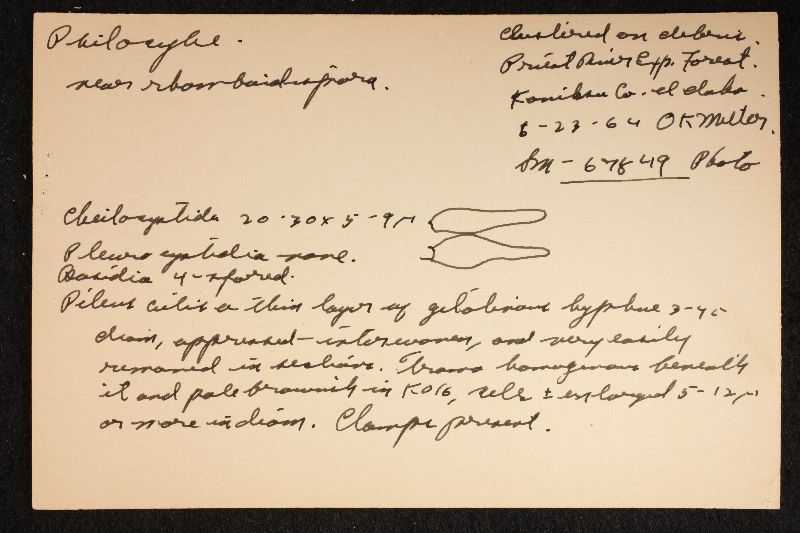 Psilocybe.
near rhomboidispora.
Clustered on debris.
Priest River Exp. Forest.
Kaniksu Co. Idaho.
6-23-64 OK Miller.
Sm-67849 Photo
Cheilocystidia 20-30 x 5-9 μ
Pleurocystidia none.
Basidia 4-spored.
Pileus cutis a thin layer of gelatinous hyphae 3-4 μ
diam, appressed-interwoven, and very easily
removed in sections. Trama homogenous beneath
it and pale brownish in KOH, cells ± enlarged 5-12 μ
or more in diam. Clamps present.